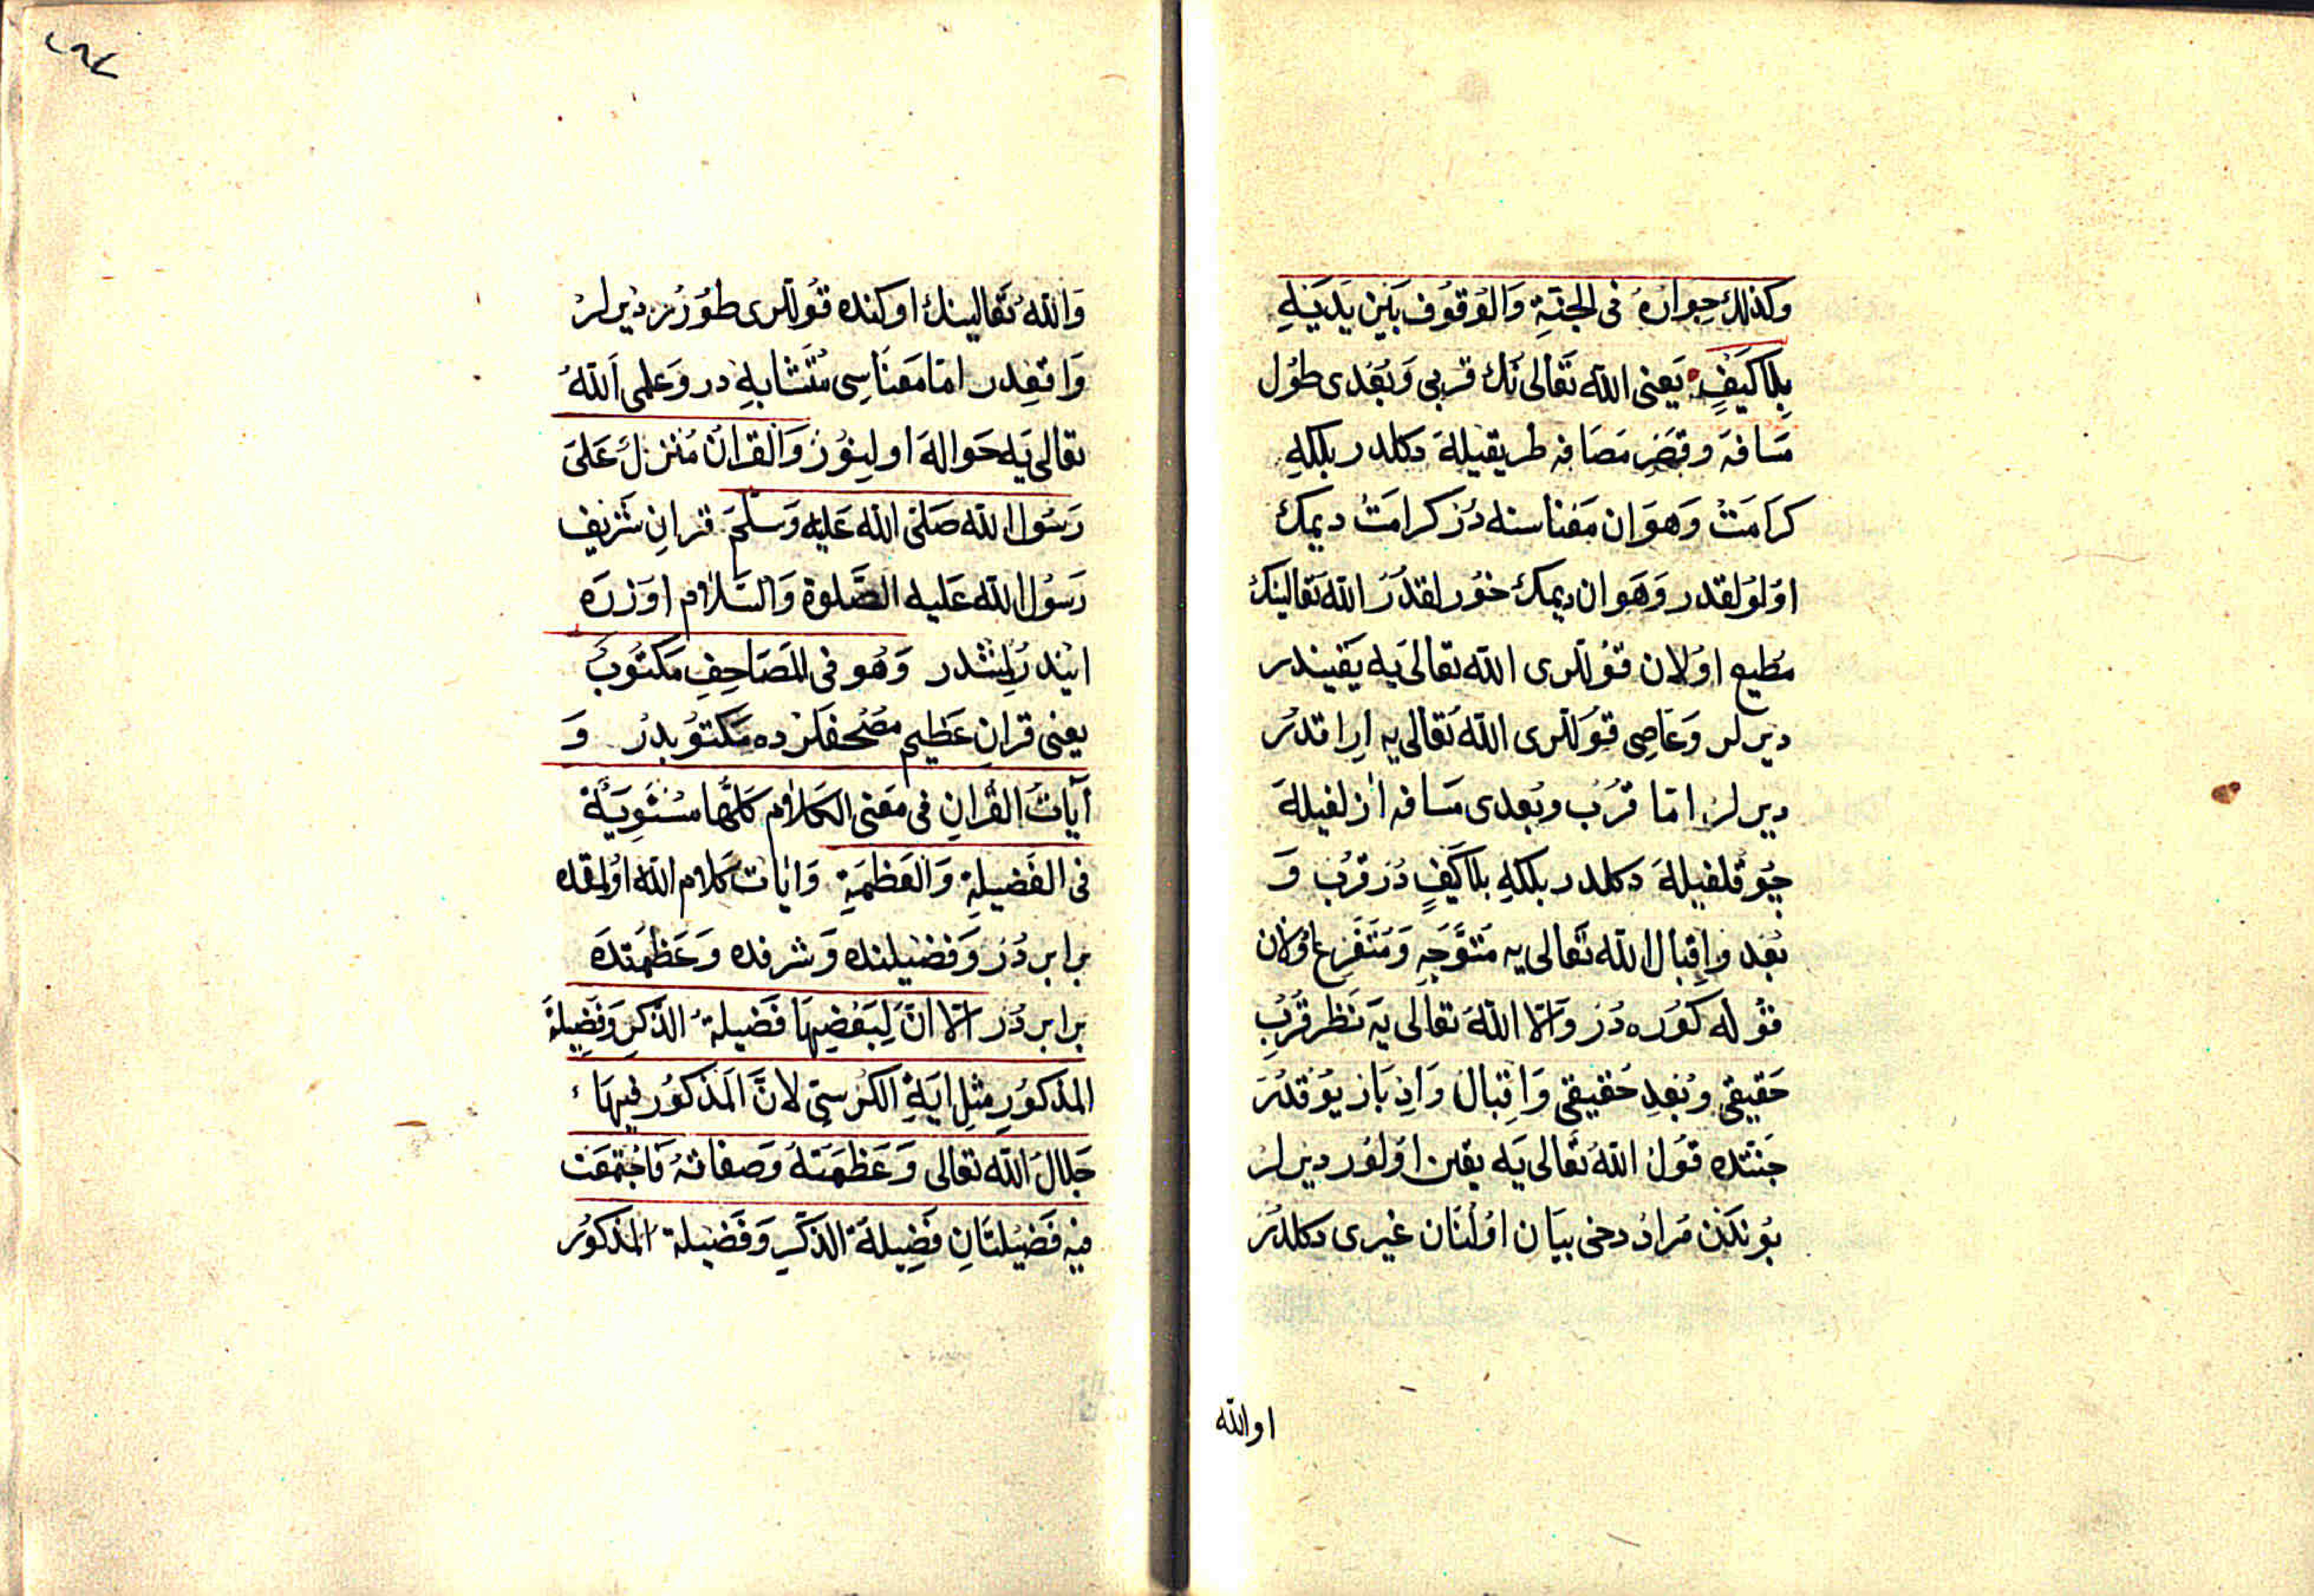 وكذلك جوارهُ فى الجنّةِ وَالوُقوُف بَيْن يَدَيْهِ
بِلَا كَيْفٍ يَعنى الله تَعَالى نُك قربى وَبُعْدى طوُل
مَسَافَه وقِصَرِ مَصَافه طريقيلَه دكلدر بلكهِ
كرَامَتْ وَهوَان مَعْناسنه دُرْ كرامَتْ ديمك
اوُلوُلقدر وَهَوان ديمك خوُرلقدُرْ الله تَعَالينكْ
مُطيع اوُلان قوُللرى الله تعَالى يَه يَقيندر
ديرلر وَعَاصِى قوُللرى اللهُ تَعَالى يه اِراقدُرْ
ديرلرْ امّا قُرْب وبُعدى مَسَافه ازلغيلَه
چوُقلغيلَه دكلدر بلكهِ بلا كَيْفٍ دُرْ قُرْب وَ
بُعْد وَاِقبال الله تَعَالى يه مُتَوَّجِه وَمُتَضَرِع اوُلان
قوُله كوُره دُرْ وَاِلّا اللهُ تعَالى يَه نَظَر قُرْبِ
حَقيقى وبُعدِ حَقيقى وَاِقبال وَاِدْبَار يوُقدُرْ
جَنّتده قوُلْ اللهُ تَعَالى يَه يقين اوُلوُر ديرلرْ
بوُنكدن مُرادْ دخى بيَان اوُلنَان غيرى دكلدُرْ
او الله
وَاللهُ تَعَالينك اوكنده قوُللرى طوُرُرْ ديرلرْ
وَاقعِدر امّا مَعنَاسِى مُتَشَابهِ در وَعلمى اللهُ
تعالى يَه حَوالهَ اولنوُرْ وَالقرانُ مُنزلٌ عَلىَ
رَسُول الله صَلىّ الله عَليْه وَسَلّمَ قرانِ شَرَيف
رَسُول الله عَليه الصّلوة وَالسَّلاٰم اوُزرَه
ايندرُلمشدر وَهُو فى المَصَاحِفِ مَكتوُبٌ
يعنى قرانِ عَظيم مصُحفلرْده مَكتوُبدُرْ وَ
آيَاتُ القُرانِ فى مَعنى الكَلاٰم كلّها مسُتَوِيَةٌ
فى الفَضيلةِ وَالعَظمَةِ وَايٰات كلام الله اوُلمقده
برابر دُرْ وَفضيلتده وَشرفده وَعَظمَتدَه
برابر دُرْ اِلّا انَّ لِبَعْضِهَا فَضيلة الذّكرِ وَفَضِيلةَ
المذكوُرِ مثِل ايَةِ الكرُسىّ لانَّ المَذكوُر فيهَا
جَلالَ الله تعَالى وَعَظمَتهُ وصفاتهُ فَاجْتمَعَت
فيْهِ فَضيْلتَانِ فَضِيلَةُ الذّكرِ وَفَضيلة المَذكوُر